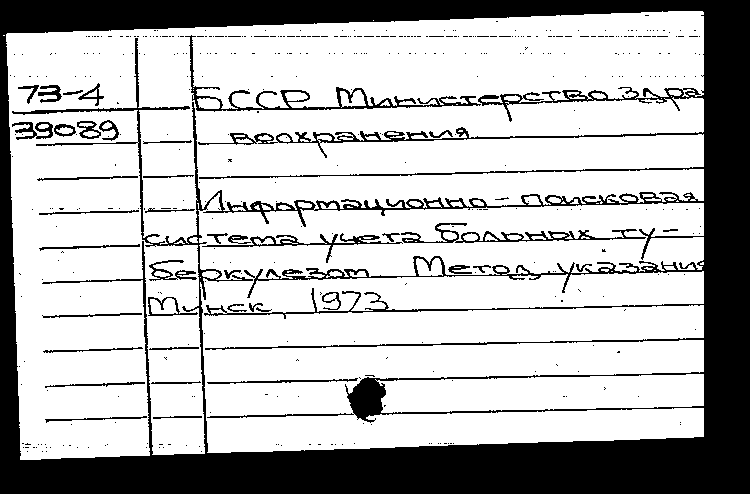 73-4
39089
БССР Министерство здра
воохранения
Информационно-поисковая
система учета больных ту-
беркулезом Метод. указания
Минск, 1973